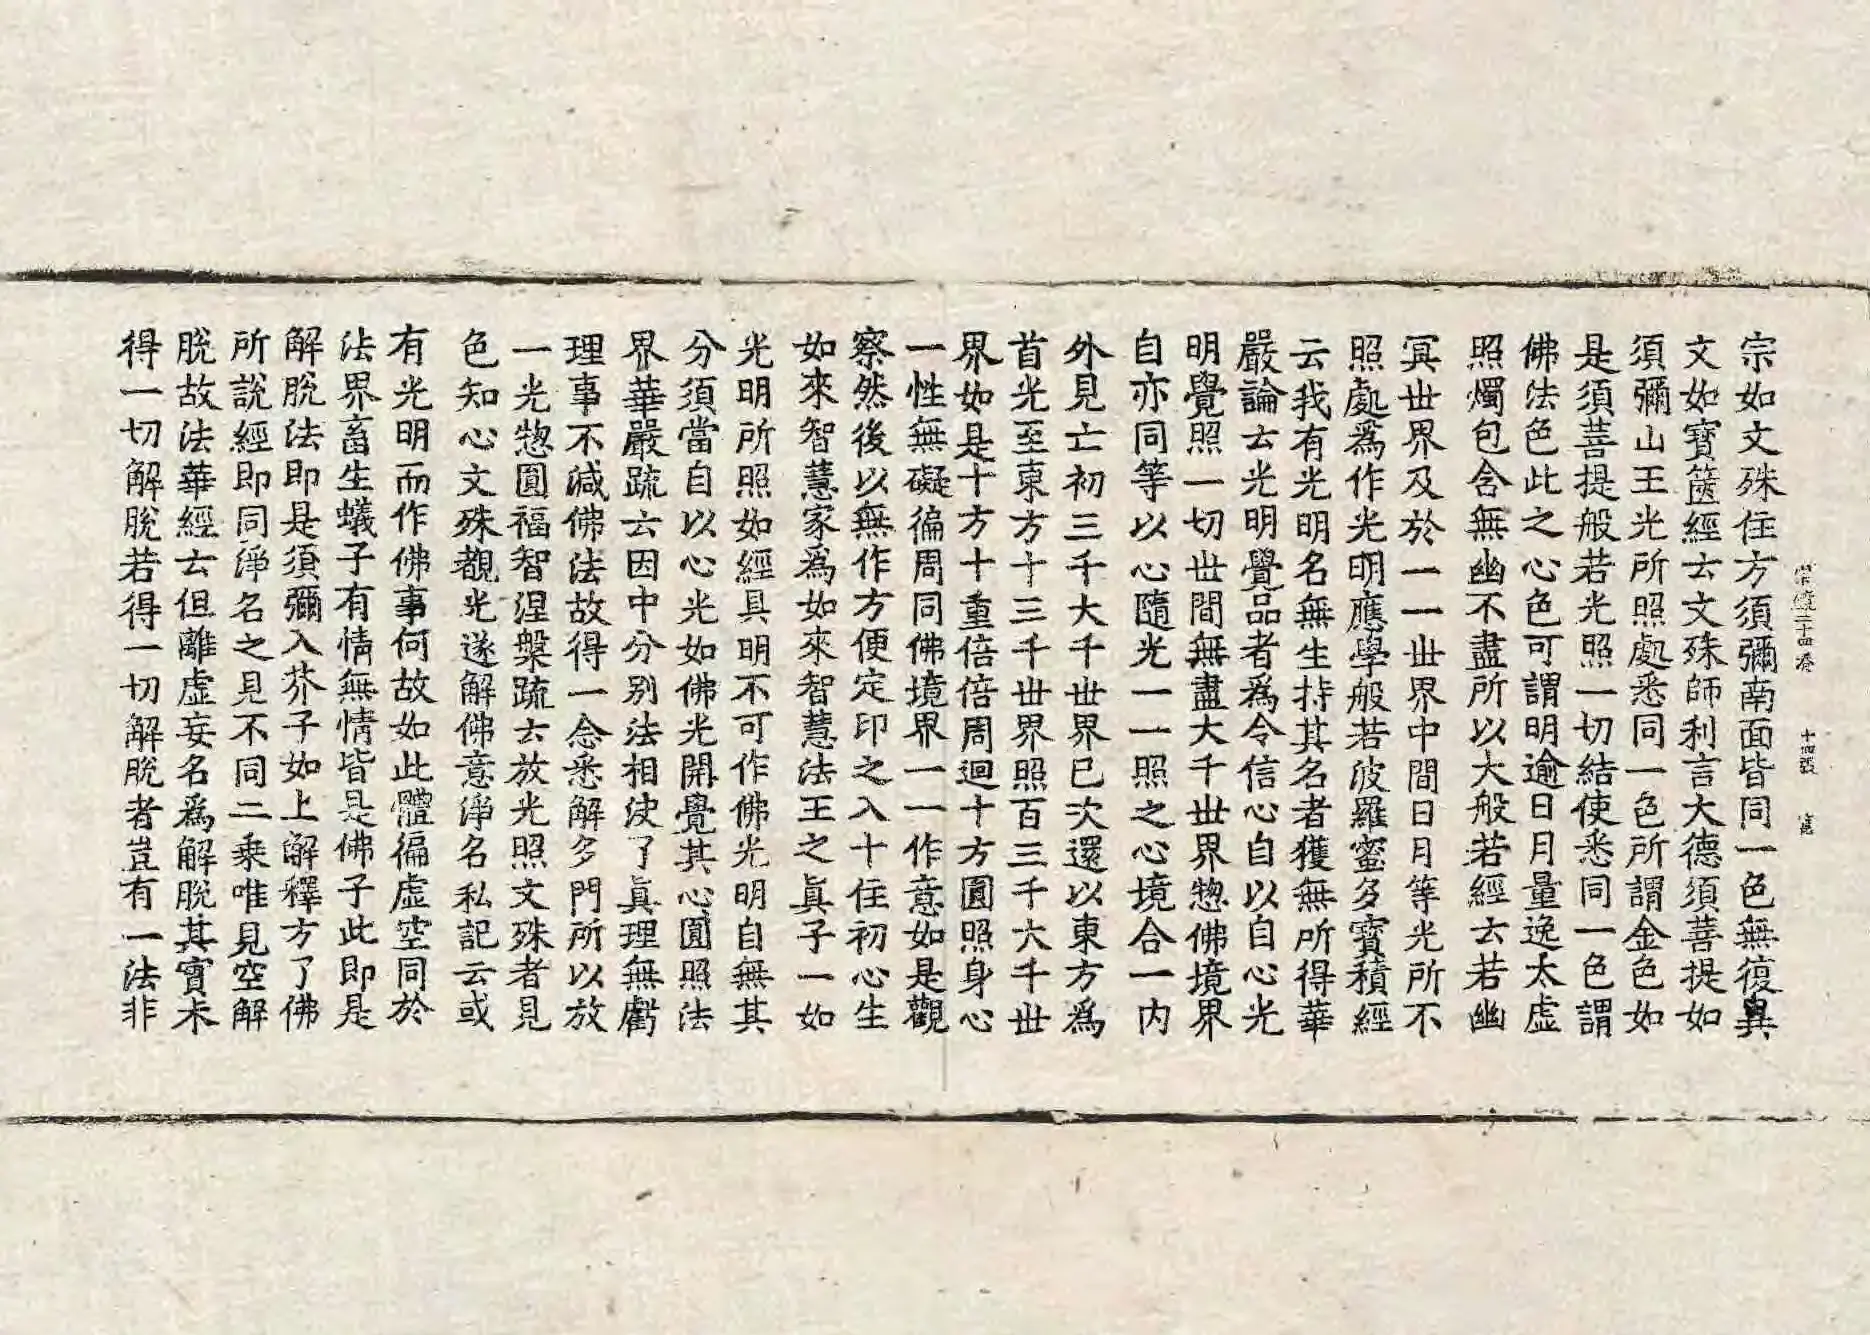 宗如文殊住方須彌南面皆同一色無復異
文如寶篋經云文殊師利言大德須菩提如
須彌山王光所照處悉同一色所謂金色如
是須菩提般若光照一切結使悉同一色謂
佛法色此之心色可謂明逾日月量逸太虛
照燭包含無幽不盡所以大般若經云若幽
冥世界及於一一世界中間日月等光所不
照處爲作光明應學般若波羅蜜多寶積經
云我有光明名無生持其名者獲無所得華
嚴論云光明覺品者爲令信心自以自心光
明覺照一切世間無盡大千世界惣佛境界
自亦同等以心隨光一一照之心境合一內
外見亡初三千大千世界已次還以東方爲
首光至東方十三千世界照百三千大千世
界如是十方十重倍倍周迴十方圓照身心
一性無礙徧周同佛境界一一作意如是觀
察然後以無作方便定印之入十住初心生
如來智慧家爲如來智慧法王之眞子一如
光明所照如經具明不可作佛光明自無其
分須當自以心光如佛光開覺其心圓照法
界華嚴疏云因中分別法相決了眞理無虧
理事不減佛法故得一念悉解多門所以放
一光惣圓福智涅槃疏云放光照文殊者見
色知心文殊覩光遂解佛意淨名私記云或
有光明而作佛事何故如此體徧虛空同於
法界畜生蟻子有情無情皆是佛子此即是
解脫法即是須彌入芥子如上解釋方了佛
所說經即同淨名之見不同二乘唯見空解
脫故法華經云但離虛妄名爲解脫其實未
得一切解脫若得一切解脫者豈有一法非